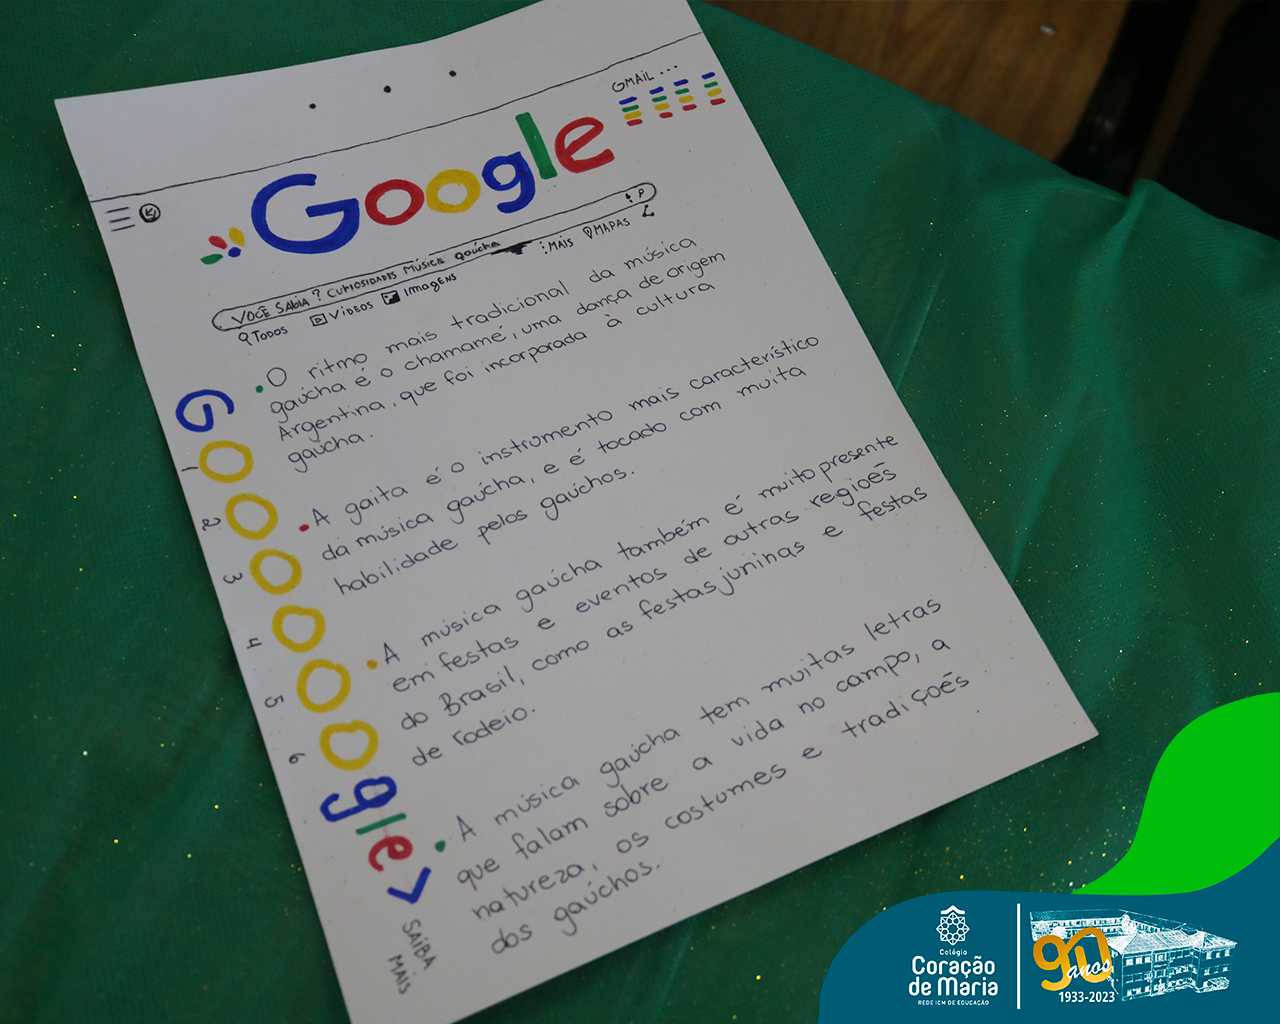 GMAIL ...
Google
VOCÊ SABIA? CURIOSIDADES MÚSICA gaúcha
TODOS VÍDEOS Imagens MAIS MAPAS
• O ritmo mais tradicional da música
gaúcha é o chamamé, uma dança de origem
Argentina, que foi incorporada à cultura
gaúcha.
• A gaita é o instrumento mais característico
da música gaúcha, e é tocado com muita
habilidade pelos gaúchos.
• A música gaúcha também é muito presente
em festas e eventos de outras regioẽs
do Brasil, como as festas júninas e festas
de rodeio.
• A música gaúcha tem muitas letras
que falam sobre a vida no campo, a
natureza, os costumes e tradiçoẽs
dos gaúchos.
Goooooogle >
1 2 3 4 5 6
SAIBA
MAIS
Colégio
Coração
de Maria
REDE ICM DE EDUCAÇÃO
90
anos
1933-2023